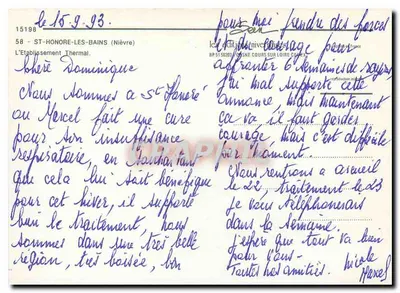 le 15.9.93.
15198
58 - ST-HONORE-LES-BAINS (Nièvre)
L'Etablissement Thermal.
Chère Dominique
Nous sommes a St Honoré
ou Marcel fait une cure
pour son insuffisance
respiratoire, en souhaitant
que cela lui soit bénéfique
pour cet hiver, il supporte
bien le traitement, nous
sommes dans une très belle
région, très boisée, bon
pour moi prendre des forces
et du courage pour
affronter 6 semaines de rayons
j'ai mal supporté cette
annonce, mais maintenant
ca va, il faut garder
courage, mais c'est difficile
par moment.
Nous rentrons a arcueil
le 22, traitement le 23
je vous téléphonerais
dans la semaine.
j'espère que tout va bien
pour vous.
Toutes nos amitiés. Nicole
Marcel